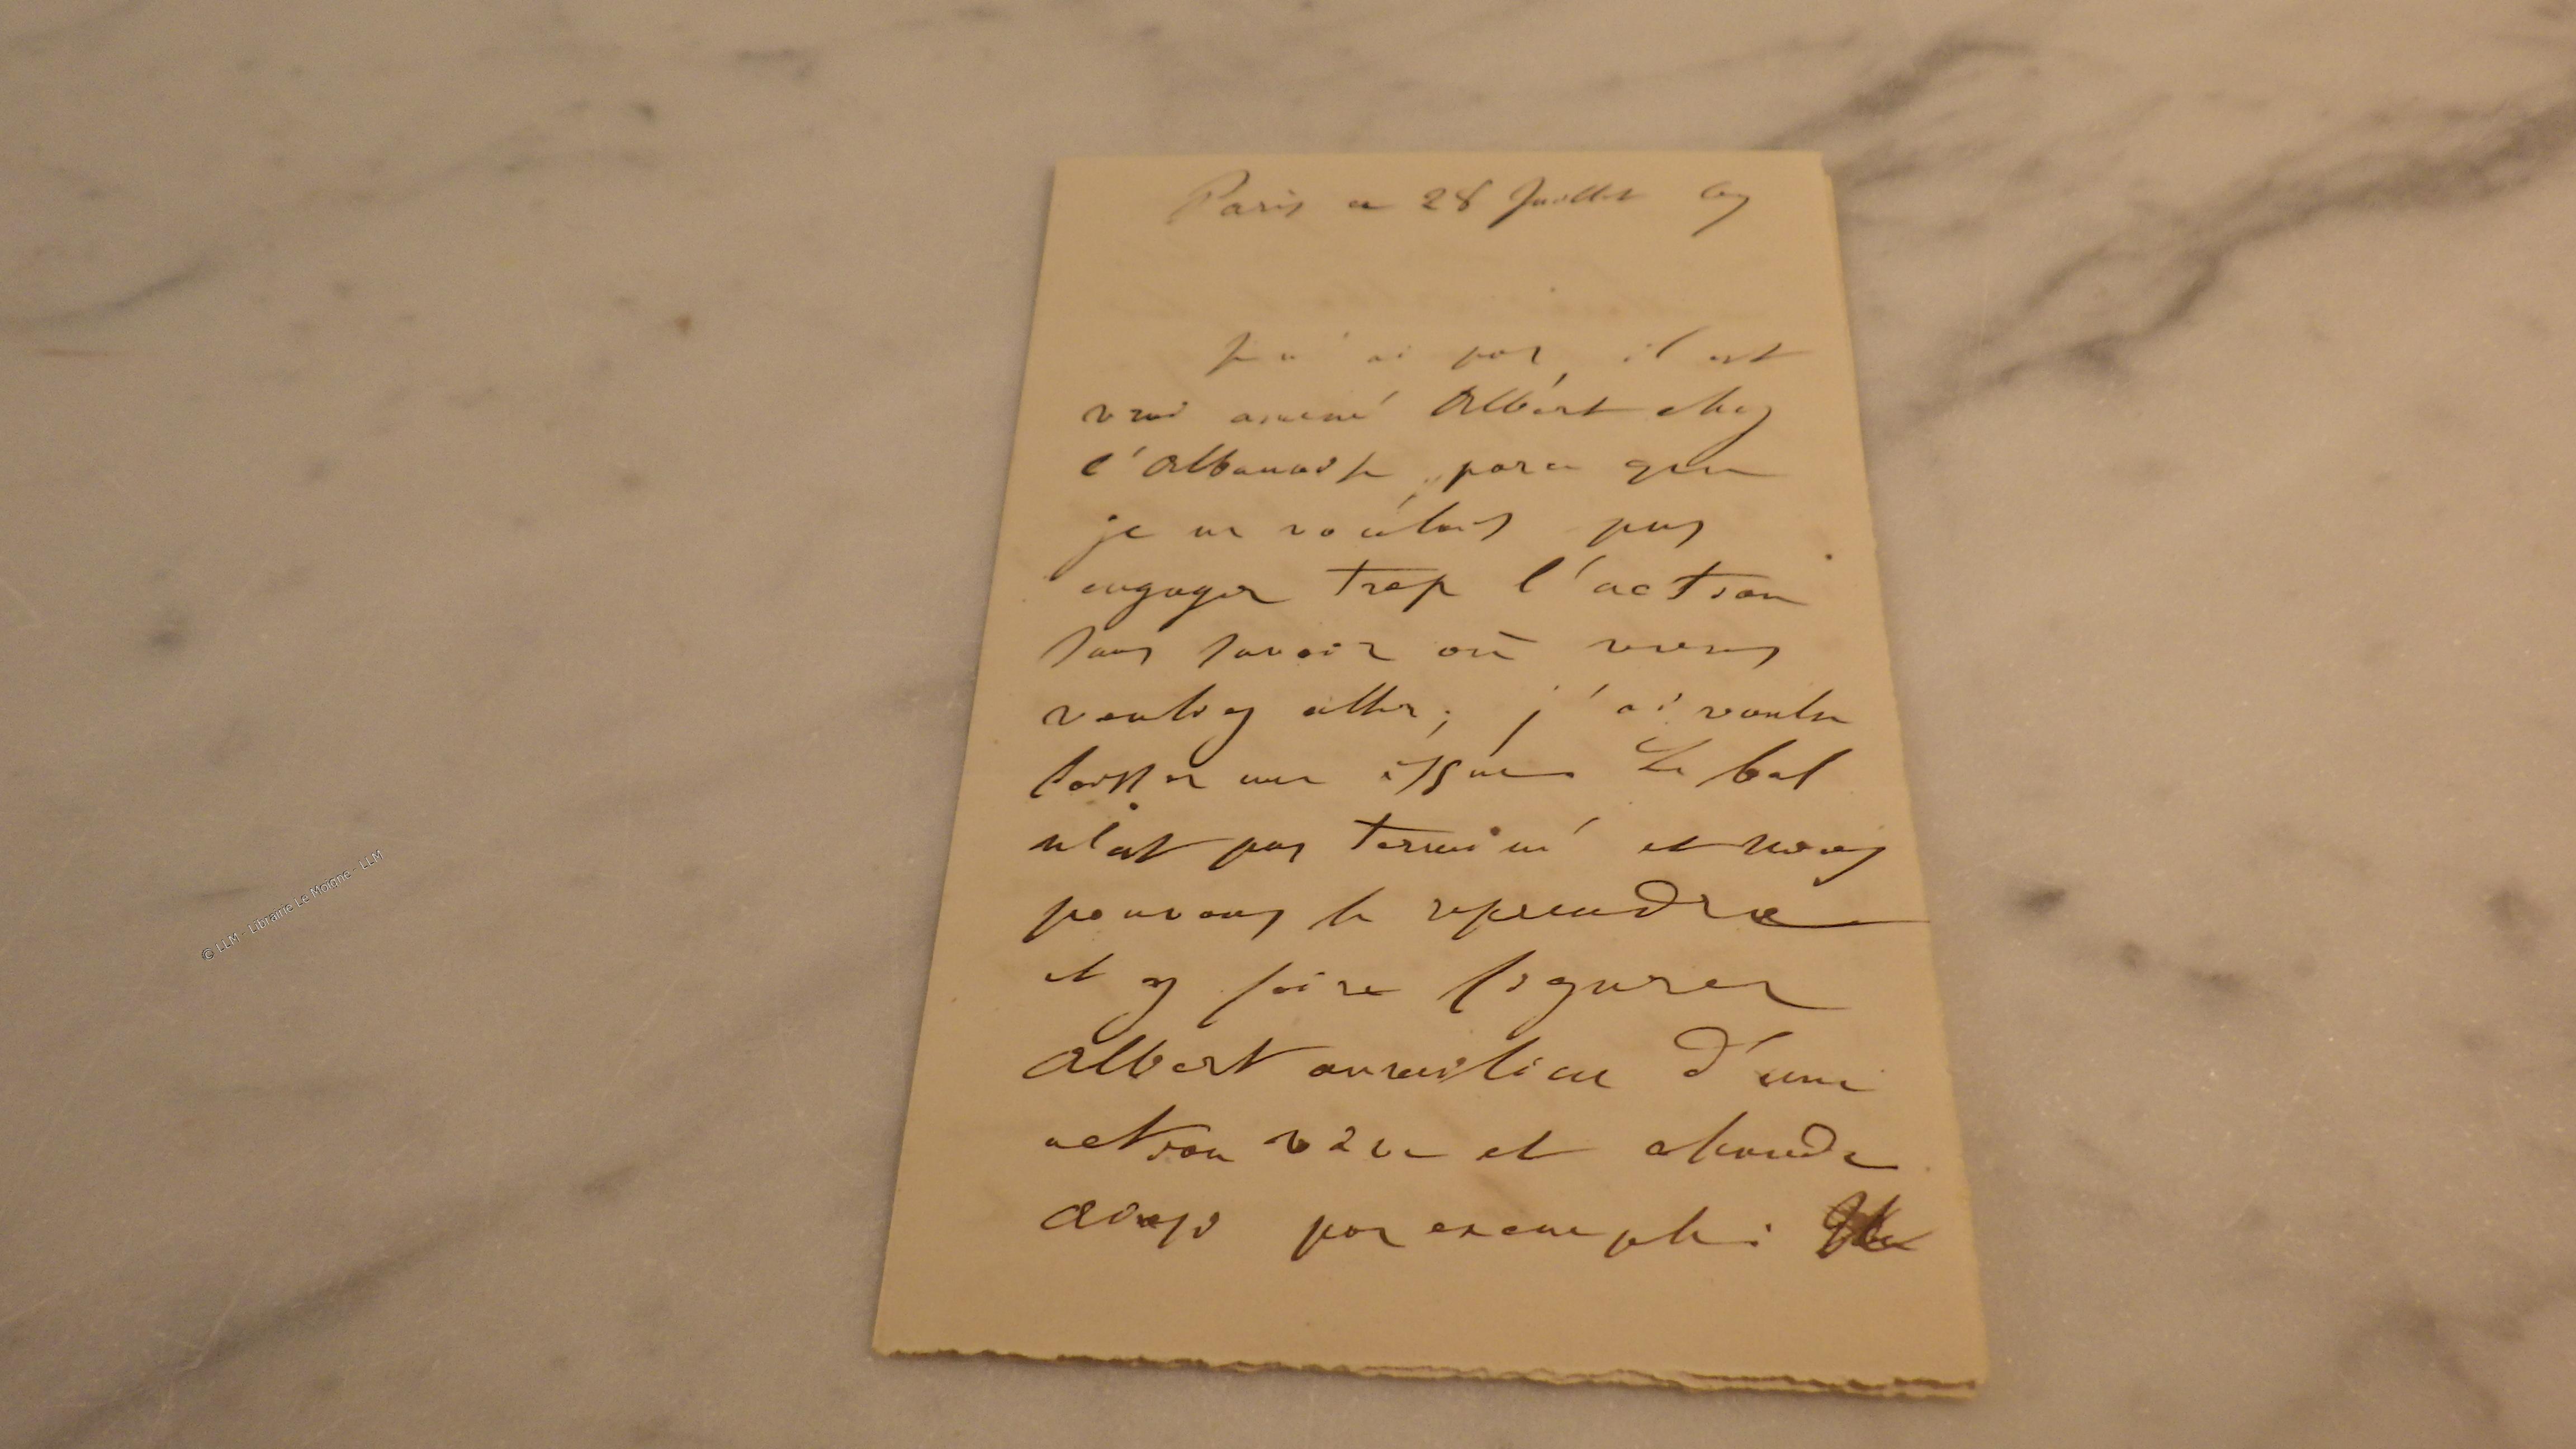 Paris ce 28 Juillet 69
Je n'ai pas, il est
vrai amené Albert chez
l'Albanaise, parce que
je ne voulais pas
engager trop l'action
sans savoir où vous
vouliez aller; j'ai voulu
laisser une issue. Le bal
n'est pas terminé et nous
pouvons le reprendre
et y faire figurer
Albert au milieu d'une
action vive et chaude
ainsi par exemple:
© LLM - Librairie Le Moigne - LLM